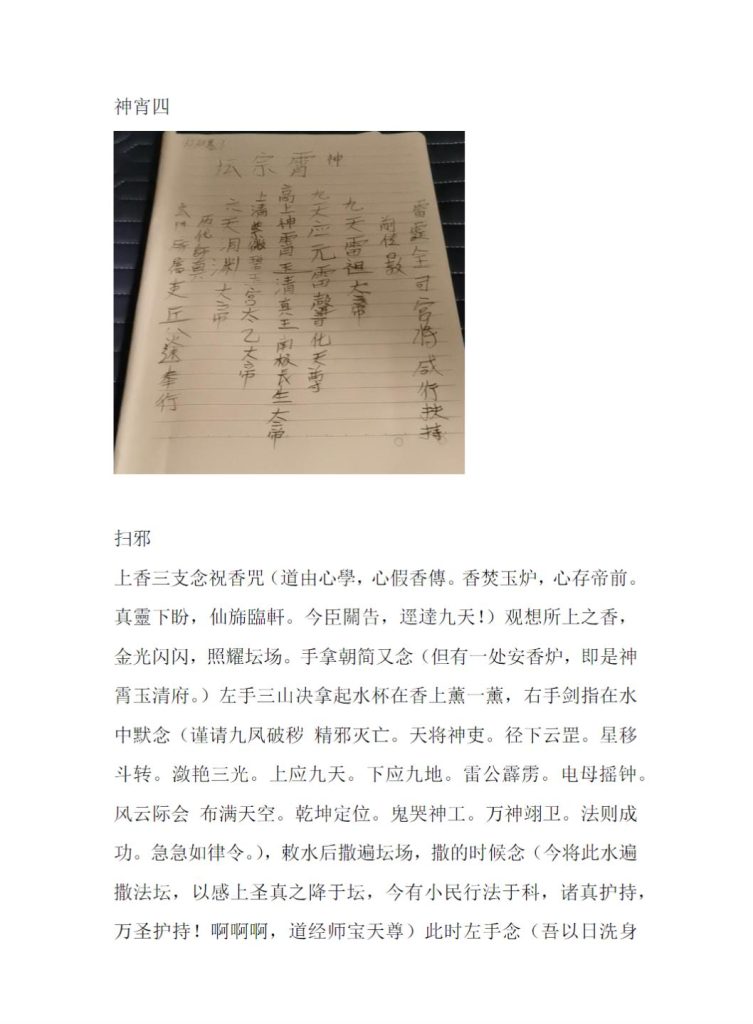 神宵四
神霄宗坛
雷霆全司官将咸行扶持
前传口教
九天雷祖大帝
九天应元雷聲普化天尊
高上神霄玉清真王南极长生大帝
上清紫微碧玉宫太乙大帝
六天洞渊大帝
历代師真
所属吏兵火速奉行
扫邪
上香三支念祝香咒（道由心學，心假香傳。香焚玉炉，心存帝前。
真靈下盼，仙旆臨軒。今臣關告，逕達九天！）观想所上之香，
金光闪闪，照耀坛场。手拿朝简又念（但有一处安香炉，即是神
霄玉清府。）左手三山决拿起水杯在香上薰一薰，右手剑指在水
中默念（谨请九凤破秽 精邪灭亡。天将神吏。径下云罡。星移
斗转。潋艳三光。上应九天。下应九地。雷公霹雳。电母摇钟。
风云际会 布满天空。乾坤定位。鬼哭神工。万神翊卫。法则成
功。急急如律令。），敕水后撒遍坛场，撒的时候念（今将此水遍
撒法坛，以感上圣真之降于坛，今有小民行法于科，诸真护持，
万圣护持！啊啊啊，道经师宝天尊）此时左手念（吾以日洗身